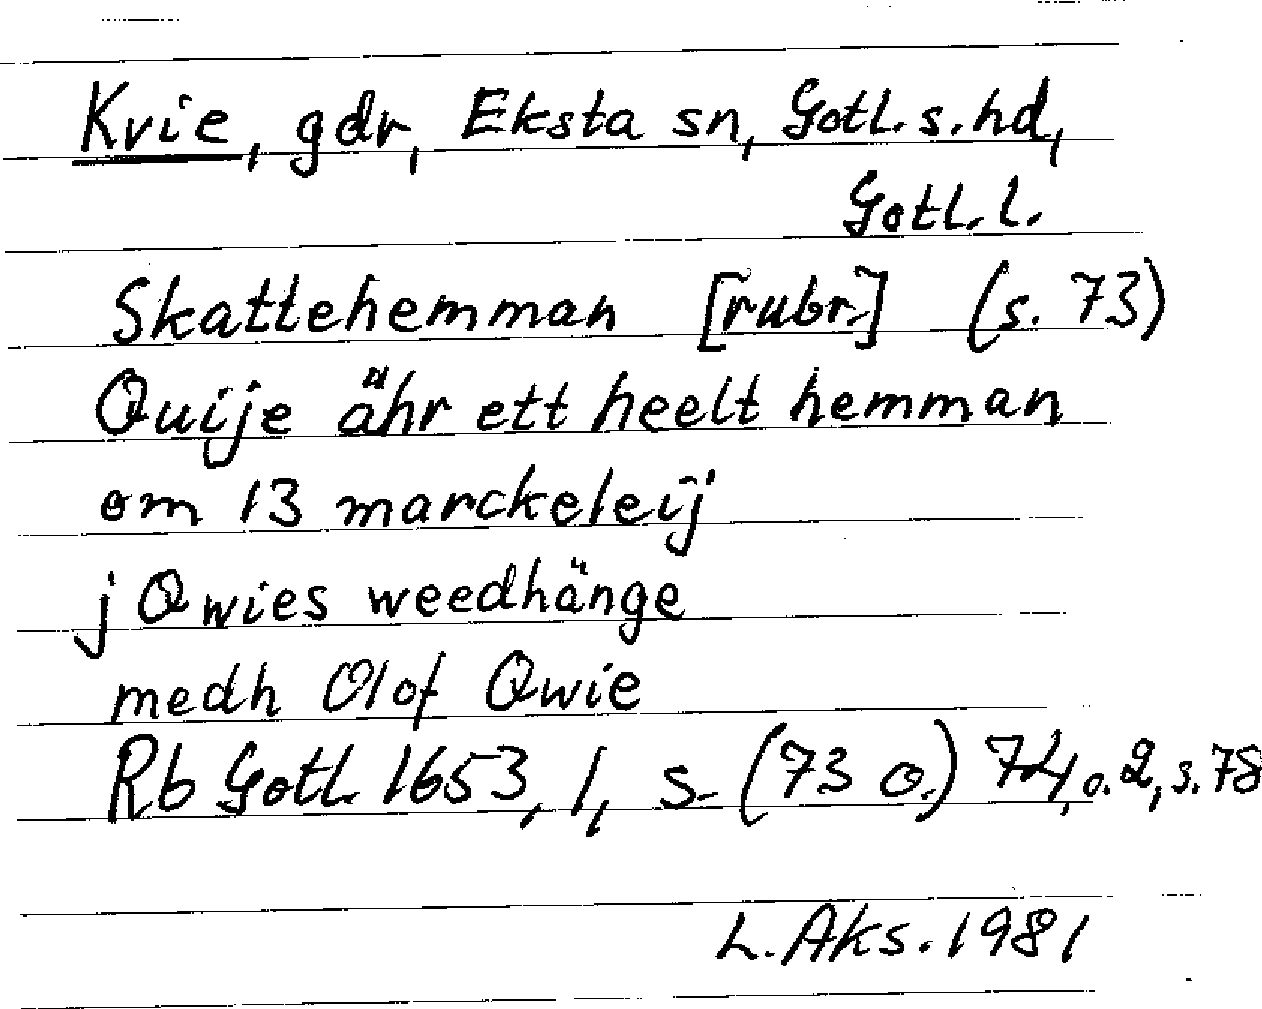 Kvie, gdr, Eksta sn, Gotl. s. hd,
Gotl. l.
Skattehemman [rubr.] (s. 73)
Quije ähr ett heelt hemman
om 13 marckeleij
j Qwies weedhänge
medh Olof Qwie
Rb Gotl. 1653, 1, s. (73 o.) 74, o. 2, s. 78
L. Aks. 1981